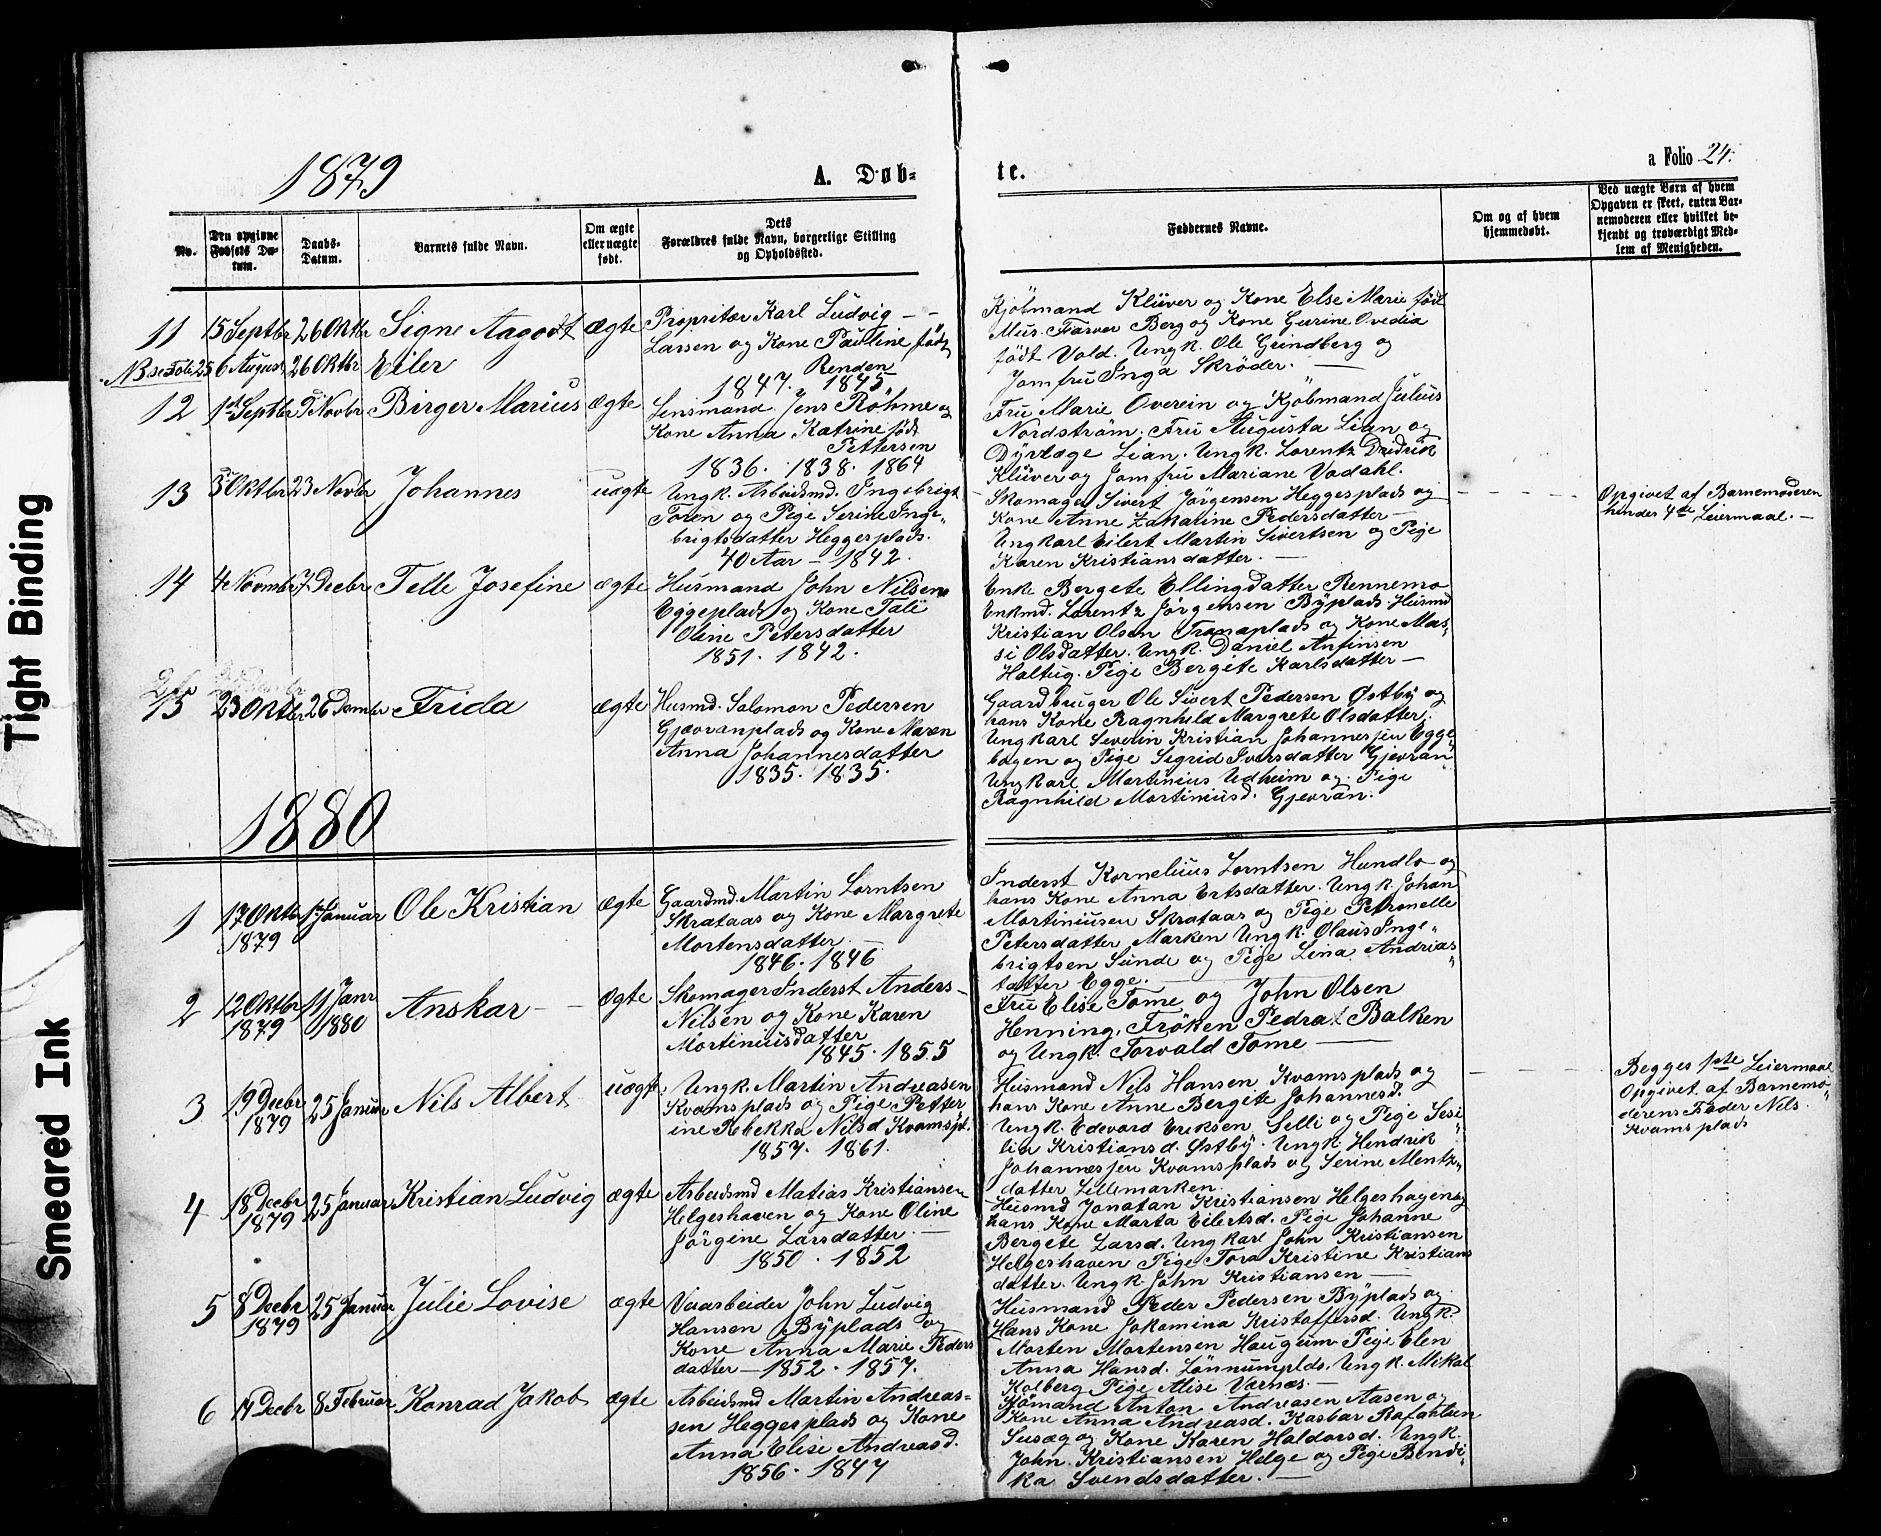 Tight Binding
Smeared Ink
1879
A. Døb-
te.
a Folio 24.
No.
Den opgivne Fødsels Da-tum.
Daabs-Datum.
Barnets fulde Navn.
Om ægte eller uægte født.
Dets Forældres fulde Navn, borgerlige Stilling og Opholdssted.
Faddernes Navne.
Om og af hvem hjemmedøbt.
Ved uægte Børn af hvem Opgaven er skeet, enten Bar-nemoderen eller hvilket be-kjendt og troværdigt Med-lem af Menigheden.
11 15 Septbr 26 Oktbr Signe Aagodt ægte
Propritær Karl Ludvig
Larsen og Kone Pauline født
Renden
1847. 1845.
Kjöbmand Klüver og Kone Else Marie född
Mus. Farver Berg og Kone Gurine Ovedia
födt Vold. Ungk. Ole Grindberg og
Jomfru Inga Skröder.
NB se Foli 25 6 August 26 Oktbr Eiler
12 1 Septbr 9 Novbr Birger Marius ægte
Lensmand Jens Röhme og
Kone Anna Katrine födt
Pettersen
1836. 1838. 1864
Fru Marie Overein og Kjöbmand Julius
Nordström. Fru Augusta Lian og
Dyrlæge Lian. Ungk. Lorentz Didrik
Klüver og Jomfru Mariane Vadahl.
13 3 Oktbr 23 Novbr Johannes uægte
Ungk. Arbeidsmd. Ingebrigt
Toren og Pige Serine Inge-
brigtsdatter Heggesplads.
40 Aar - 1842.
Skomager Sivert Jörgensen Heggesplads og
Kone Anne Zakarine Pedersdatter
Ungkarl Eilert Martin Sivertsen og Pige
Karen Kristiansdatter.
Opgivet af Barnemoderen
hendes 4de Leiermaal.
14 4 Novmbr 7 Decbr Telle Josefine ægte
Husmand John Nilsen
Eggeplads og Kone Tali
Oline Petersdatter
1851. 1842.
Enke Bergete Ellingdatter Rennemo
Enkmd. Lorentz Jörgensen Byplads. Husmd
Kristian Olsen Tranaplads og Kone Mas-
si Olsdatter. Ungk. Daniel Anfinsen
Haltug. Pige Bergite Karlsdatter
15 23 Oktbr 26 Dember Frida ægte
Husmd. Salomon Pedersen
Gjævranplads og Kone Maren
Anna Johannesdatter
1835. 1835.
Gaardbruger Ole Sivert Pedersen Østby og
hans Kone Ragnhild Margrete Olsdatter.
Ungkarl Severin Kristian Johannesen Egge-
bogen og Pige Sigrid Iversdatter Gjevran
Ungkarl Martinius Udheim og Pige
Ragnhild Martiniusd. Gjevran.
1880
1 17 Oktbr 1879 1 Januar Ole Kristian ægte
Gaardmd. Martin Lorntsen
Skrataas og Kone Margrete
Mortensdatter
1846. 1846
Inderst Kornelius Lorntsen Hundlo og
hans Kone Anna Ertsdatter. Ungk. Johan
Martiniusen Skrataas og Pige Petronelle
Petersdatter Marken Ungk. Olaus Inge-
brigtsen Sunde og Pige Lina Andrias
datter Egge.
2 12 Oktbr 1879 11 Janr 1880 Anskar ægte
Skomager Inderst Anders
Nilsen og Kone Karen
Mortiniusdatter
1845. 1855
Fru Elise Tome og John Olsen
Henning, Fröken Pedrat Balken
og Ungk. Torvald Tome
3 19 Decbr 1879 25 Januar Nils Albert uægte
Ungk. Martin Andreasen
Kvamsplads og Pige Petter
ine Rebekka Nilsd Kvamspl.
1857. 1861.
Husmand Nels Hansen Kvamsplads og
hans Kone Anne Bergite Johannesd.
Ungk. Edevard Eriksen Selli og Pige Sesi-
lia Kristiansd. Østby. Ungk. Hendrik
Johannesen Kvamsplads og Serine Mentz-
datter Lillemarken.
Begges 1ste Leiermaal
Opgivet af Barnemo-
derens Fader Nels
Kvamsplads
4 18 Decbr 1879 25 Januar Kristian Ludvig ægte
Arbeidsmd Matias Kristiansen
Helgeshaven og Kone Oline
Jörgine Larsdatter.
1850. 1852
Husmd Jonatan Kristiansen Helgeshagen og
hans Kone Marta Eilertsd. Pige Johanne
Bergete Larsd. Ungkarl John Kristiansen
Helgeshaven Pige Tora Kristine Kristians
datter. Ungk. John Kristiansen
5 8 Decbr 1879 25 Januar Julie Lovise ægte
Veiarbeider John Ludvig
Hansen Byplads og
Kone Anna Marie Peders
datter - 1852. 1857.
Husmand Peder Pedersen Byplads og
Hans Kone Jokomina Kristoffersd. Ungk.
Morten Mortensen Haugum Pige Elen
Anna Hansd. Lönnumplds. Ungk. Mikal
Holberg Pige Alise Varnæs.
6 14 Decbr 8 Februar Konrad Jakob ægte
Arbeidsmd Martin Andreas-
sen Heggesplads og Kone
Anna Elise Andreasd.
1856. 1847
Sömand Anton Andreasen Aasen og
Kone Anna Andreasd. Kasbar Rafaelsen
Susæg og Kone Karen Haldorsd. Ungk.
John Kristiansen Helge og Pige Bendi-
ka Svendsdatter.